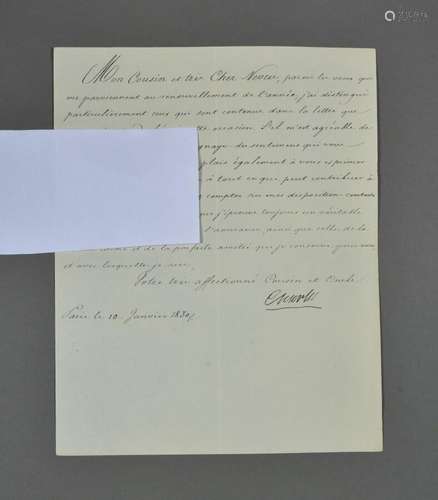 Mon Cousin et très Cher Neveu, parmi les vœux qui
me parviennent au renouvellement de l'année, j'ai distingué
particulièrement ceux qui sont contenus dans la lettre que
occasion. Il m'est agréable de
gnage des sentimens qui vous
plais également à vous exprimer
à tout ce que peut contribuer à
compter sur mes dispositions
que j'éprouve toujours un véritable
l'assurance, ainsi que celle de la
et de la parfaite amitié que je conserve pour vous
et avec laquelle je suis,
Votre très affectionné Cousin et Oncle
Charles
Paris le 10 Janvier 1830